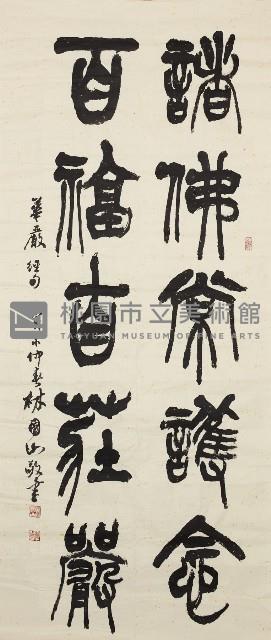 諸佛常護念
百福自莊嚴
華嚴經句 未仲春林國山敬書
桃園市立美術館
TAOYUAN MUSEUM OF FINE ARTS